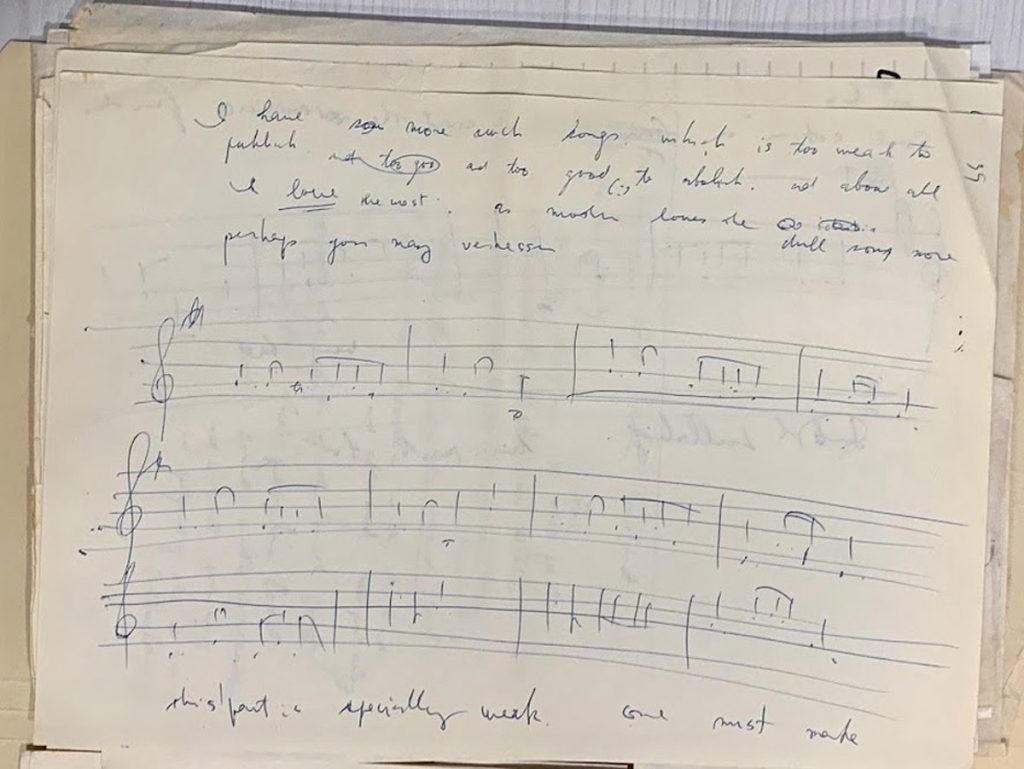 I have some more such songs. which is too weak to
publish not too goo and too good (:) to abolish. and above all
I love the most. as mother loves the
perhaps you may verbessern dull song more
this part is specially weak. one must make